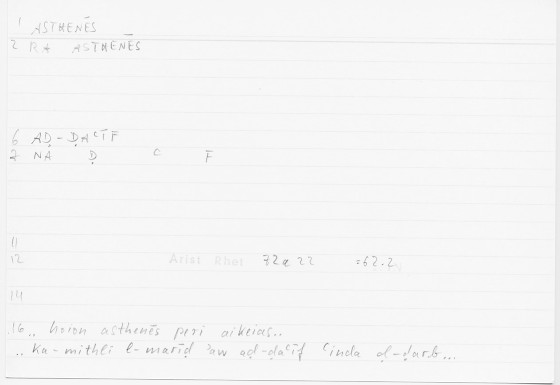 1 ASTHENĒS
2 RA ASTHENĒS
6 AḌ-ḌAʿĪF
7 NA Ḍ ʿ F
11
12 Arist Rhet 72a 22 =62.2,
14
16 .. hoion asthenēs peri aikeias..
.. ka-mithli l-marīḍ ʾaw aḍ-ḍaʿīf ʿinda ḍ-ḍarb...